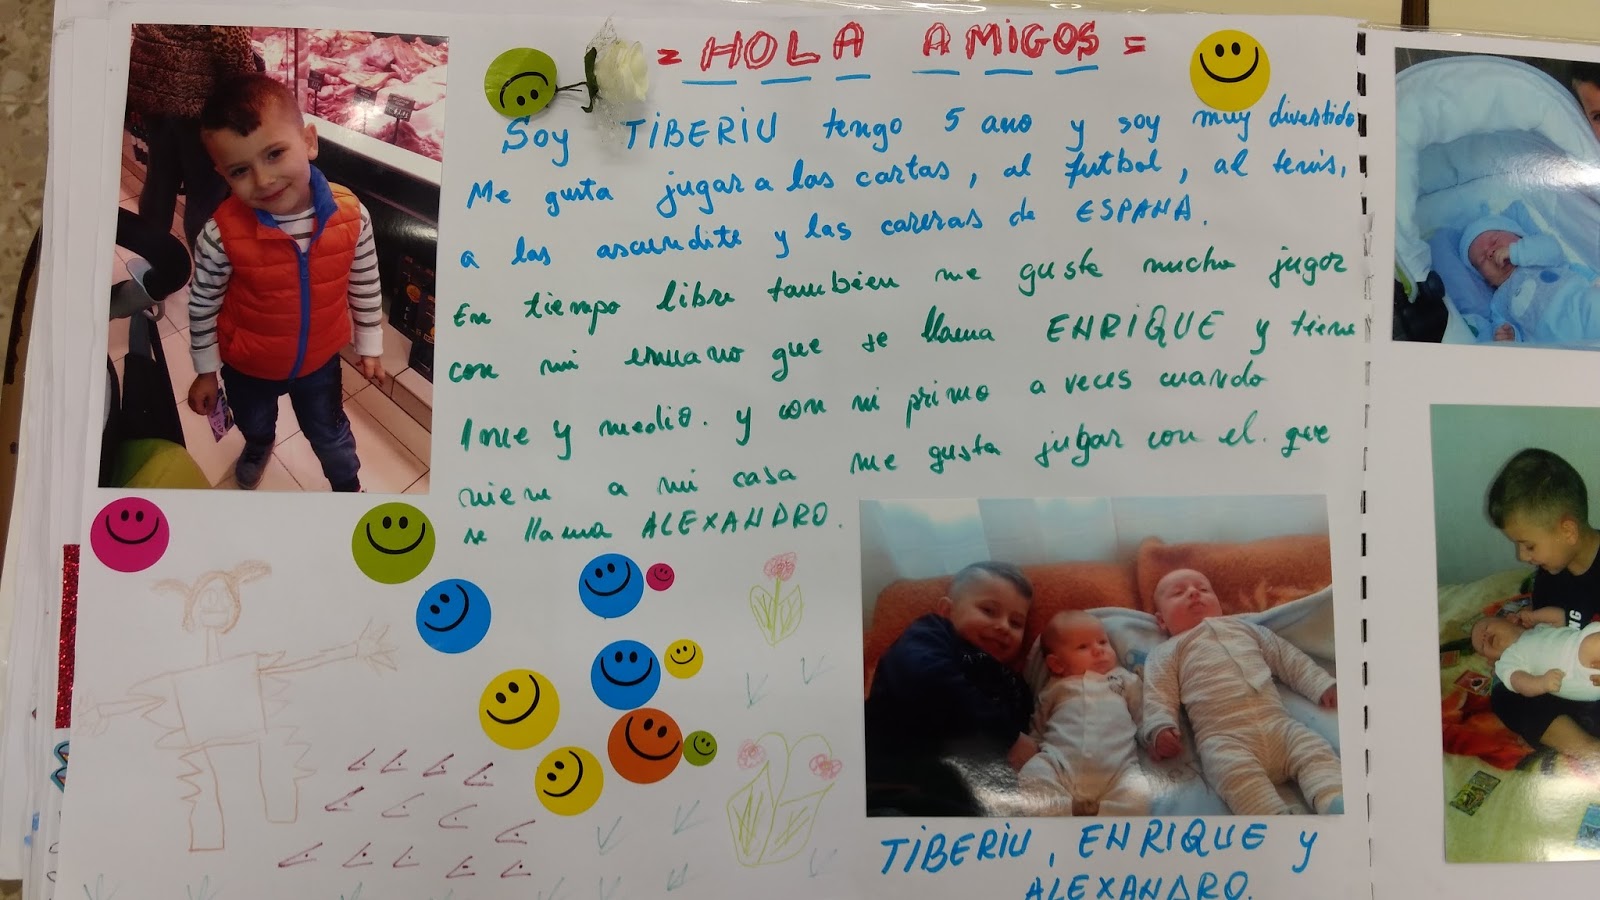 = HOLA AMIGOS =
Soy TIBERIU tengo 5 ano y soy muy divertido
Me gusta jugar a las cartas, al futbol, al tenis,
a las ascundite y las careras de ESPANA.
En tiempo libre tambien me gusta mucho jugar
con mi ermano que se llama ENRIQUE y tiene
1 me y medio. y con mi primo a veces cuando
viene a mi casa me gusta jugar con el. que
se llama ALEXANDRO.
TIBERIU, ENRIQUE y
ALEXANDRO.